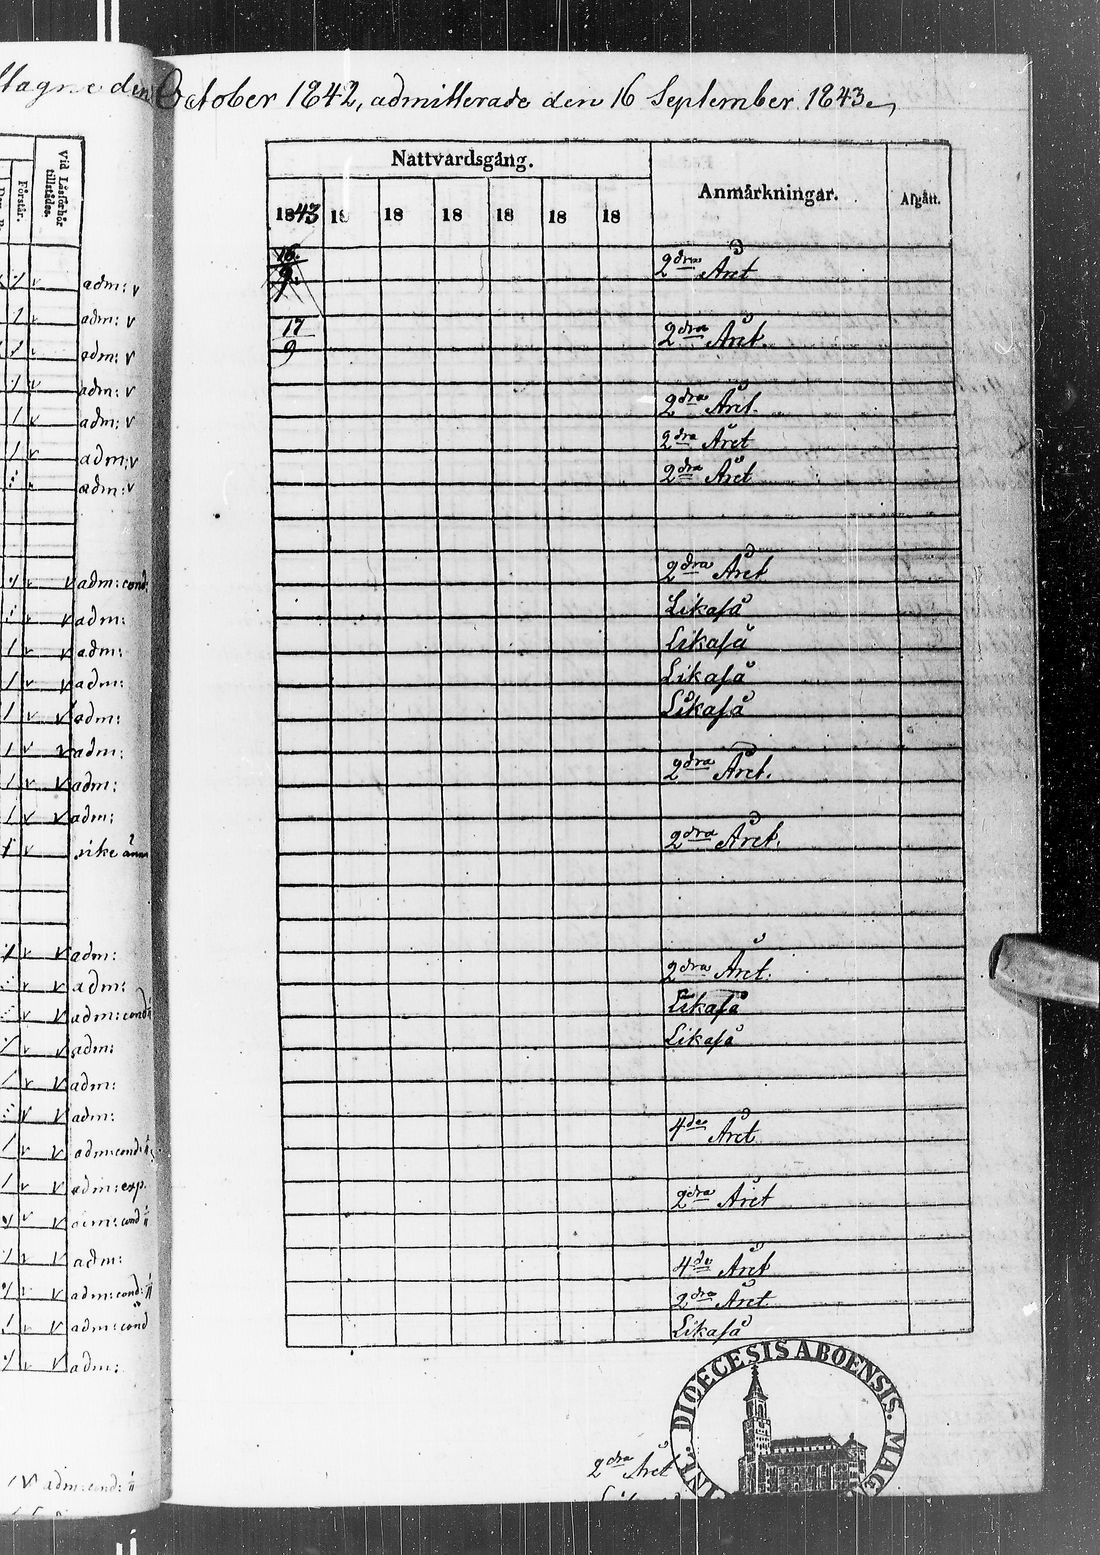 October 1842, admitterade den 16 September 1843.
Nattvardsgång.
Anmärkningar.
Afgått.
Vid Läsförhör tillstädes.
Förstår.
1843 18 18 18 18 18 18
16/9
2dra Året
adm: v
adm: v
17/9
2dra Året.
adm: v
adm: v
2dra Året.
adm: v
2dra Året
adm: v
2dra Året
adm: v
2dra Året
adm: cond:
Likaså
adm:
Likaså
adm:
Likaså
adm:
Likaså
adm:
adm:
2dra Året.
adm:
adm:
2dra Året.
icke
adm:
2dra Året.
adm:
Likaså
adm: cond:
Likaså
adm:
adm:
adm:
4de Året
adm: cond:
adm: exp.
2dra Året
adm: cond
adm:
4de Året
adm: cond:
2dra Året
adm: cond
Likaså
adm:
DIOECESIS ABOENSIS. MAG
2dra Året
adm: cond: